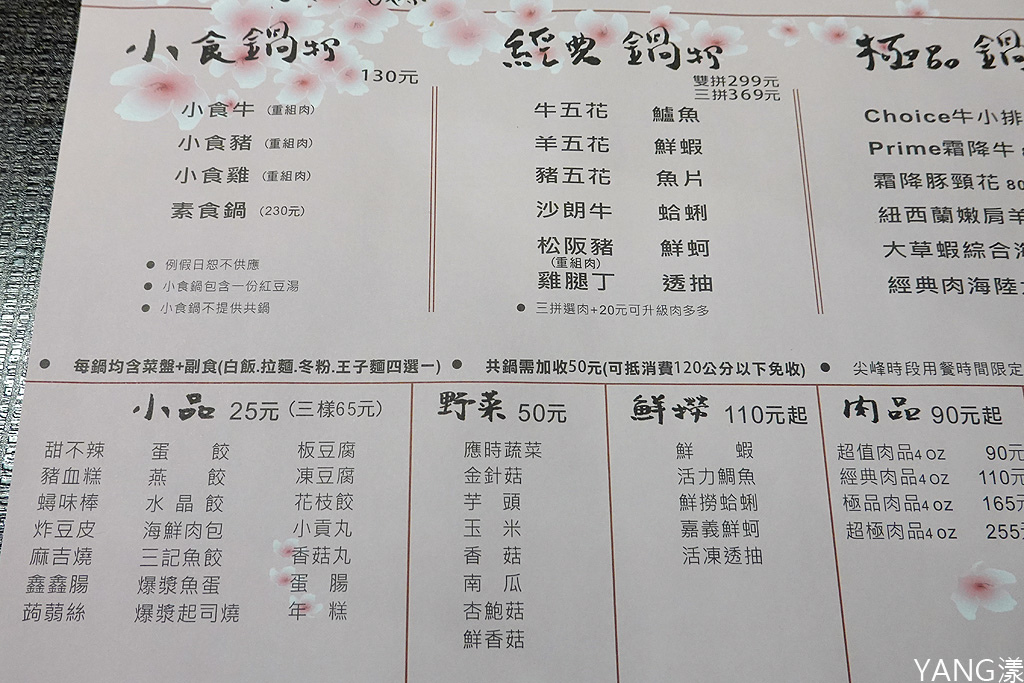 小食鍋物
130元
小食牛 (重組肉)
小食豬 (重組肉)
小食雞 (重組肉)
素食鍋 (230元)
● 例假日恕不供應
● 小食鍋包含一份紅豆湯
● 小食鍋不提供共鍋
經典鍋物
雙拼299元
三拼369元
牛五花 鱸魚
羊五花 鮮蝦
豬五花 魚片
沙朗牛 蛤蜊
松阪豬 鮮蚵
(重組肉)
雞腿丁 透抽
● 三拼選肉+20元可升級肉多多
極品鍋
Choice牛小排
Prime霜降牛
霜降豚頸花 80
紐西蘭嫩肩羊
大草蝦綜合海
經典肉海陸
● 每鍋均含菜盤+副食(白飯.拉麵.冬粉.王子麵四選一) ● 共鍋需加收50元(可抵消費120公分以下免收) ● 尖峰時段用餐時間限定
小品 25元 (三樣65元)
甜不辣 蛋餃 板豆腐
豬血糕 燕餃 凍豆腐
蟳味棒 水晶餃 花枝餃
炸豆皮 海鮮肉包 小貢丸
麻吉燒 三記魚餃 香菇丸
鑫鑫腸 爆漿魚蛋 蛋腸
蒟蒻絲 爆漿起司燒 年糕
野菜 50元
應時蔬菜
金針菇
芋頭
玉米
香菇
南瓜
杏鮑菇
鮮香菇
鮮撈 110元起
鮮蝦
活力鯛魚
鮮撈蛤蜊
嘉義鮮蚵
活凍透抽
肉品 90元起
超值肉品4oz 90元
經典肉品4oz 110元
極品肉品4oz 165元
超極肉品4oz 255元
YANG漾